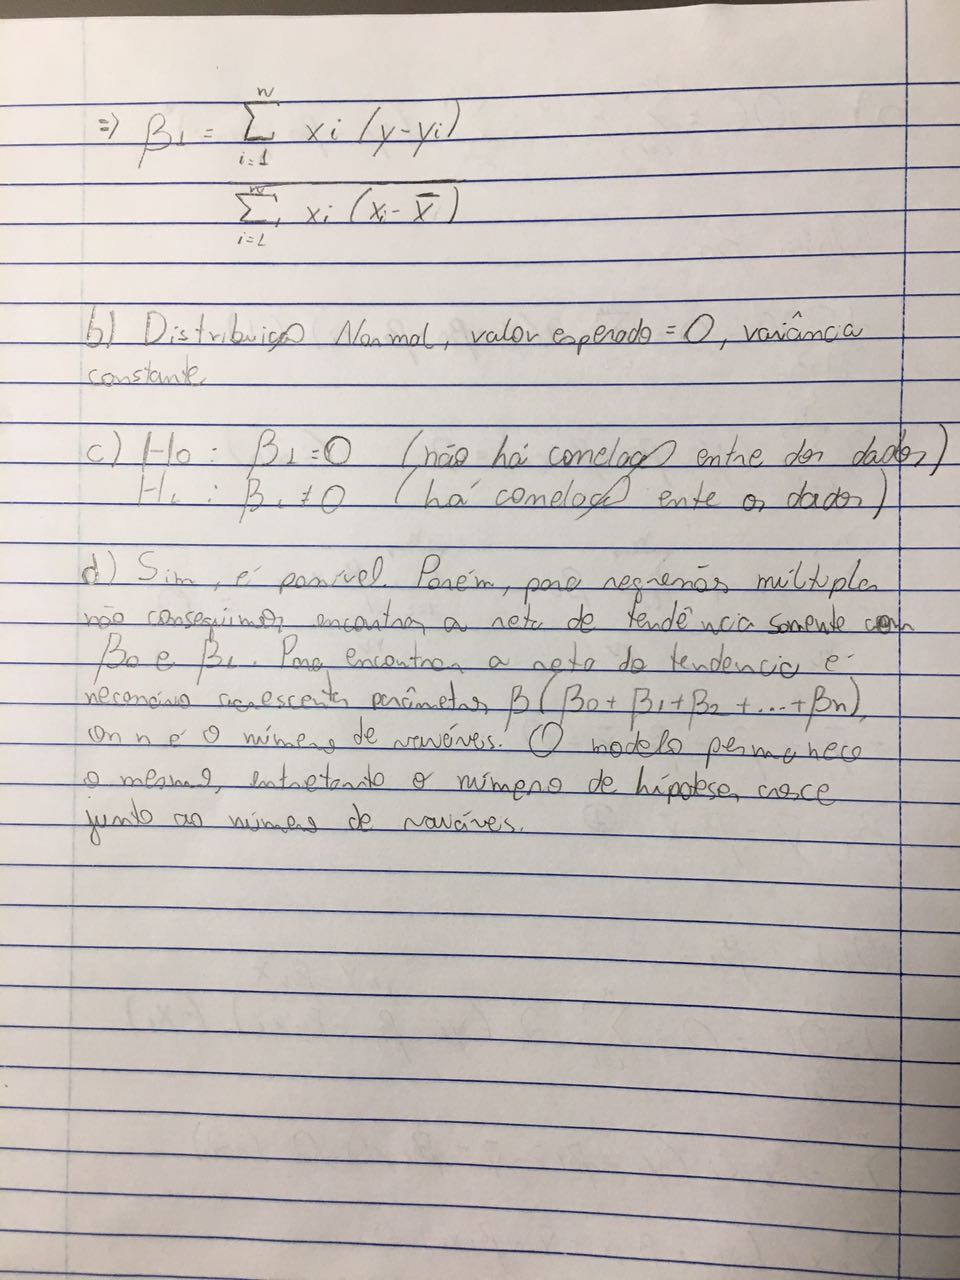 ⇒ β1 = Σ xi (y-yi)
n
i=1
Σ xi (xi - x̄)
n
i=1
b) Distribuição Normal, valor esperado = 0, variância
constante.
c) H0 : β1 = 0 (não há correlação entre dos dados)
H1 : β1 ≠ 0 (há correlação ente os dados)
d) Sim, é possível. Porém, para regressões múltiplas
não conseguimos encontrar a reta de tendência somente com
β0 e β1. Para encontrar a reta de tendencia é
necessário acrescentar parâmetros β (β0 + β1 + β2 + ... + βn),
on n é o número de variáveis. O modelo permanece
o mesmo, entretanto o número de hipóteses cresce
junto ao número de variáveis.